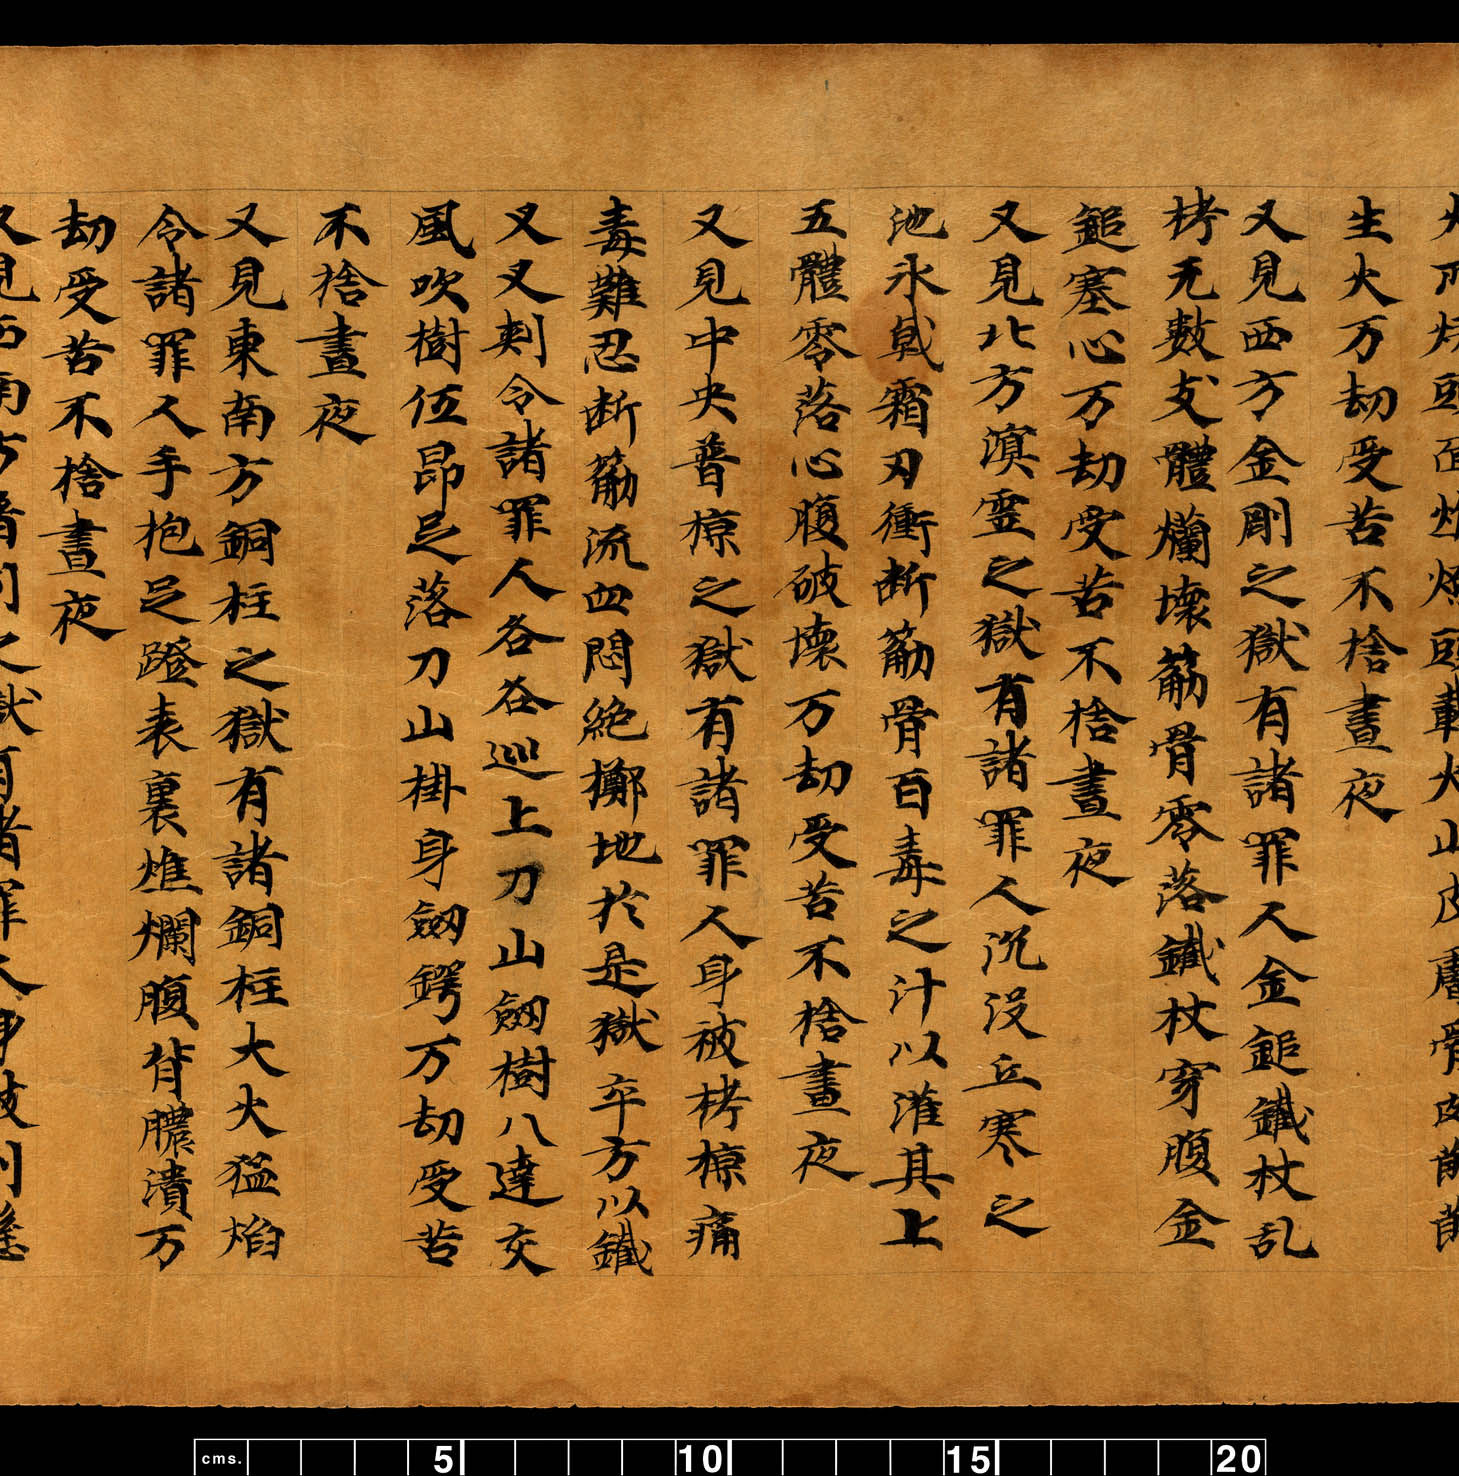 火山皮膚骨
生火万劫受苦不捨晝夜
又見西方金剛之獄有諸罪人金鎚鐵杖乱
栲无數支體爛壞筋骨零落鐵杖穿腹金
鎚塞心万劫受苦不捨晝夜
又見北方溟霊之獄有諸罪人沉没丘寒之
池氷戟霜刃衝断筋骨百毒之汁以灌其上
五體零落心腹破壞万劫受苦不捨晝夜
又見中央普椋之獄有諸罪人身被栲椋痛
毒難忍断筋流血悶絶擲地於是獄卒方以鐵
叉叉刾令諸罪人各各巡上刀山劔樹八達交
風吹樹伍昂足落刀山掛身劔鍔万劫受苦
不捨晝夜
又見東南方銅柱之獄有諸銅柱大火猛焰
令諸罪人手抱足蹬表裏燋爛腹背膿潰万
劫受苦不捨晝夜
又見西南方